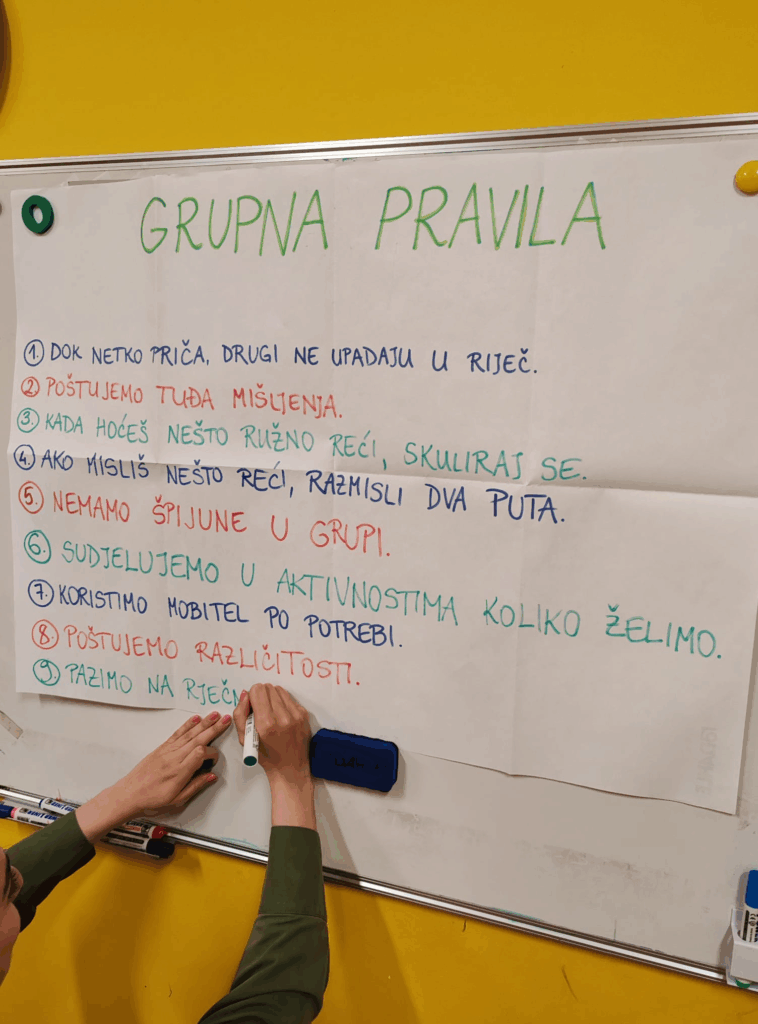 GRUPNA PRAVILA
1. DOK NETKO PRIČA, DRUGI NE UPADAJU U RIJEČ.
2. POŠTUJEMO TUĐA MIŠLJENJA.
3. KADA HOĆEŠ NEŠTO RUŽNO REĆI, SKULIRAJ SE.
4. AKO MISLIŠ NEŠTO REĆI, RAZMISLI DVA PUTA.
5. NEMAMO ŠPIJUNE U GRUPI.
6. SUDJELUJEMO U AKTIVNOSTIMA KOLIKO ŽELIMO.
7. KORISTIMO MOBITEL PO POTREBI.
8. POŠTUJEMO RAZLIČITOSTI.
9. PAZIMO NA RJEČN